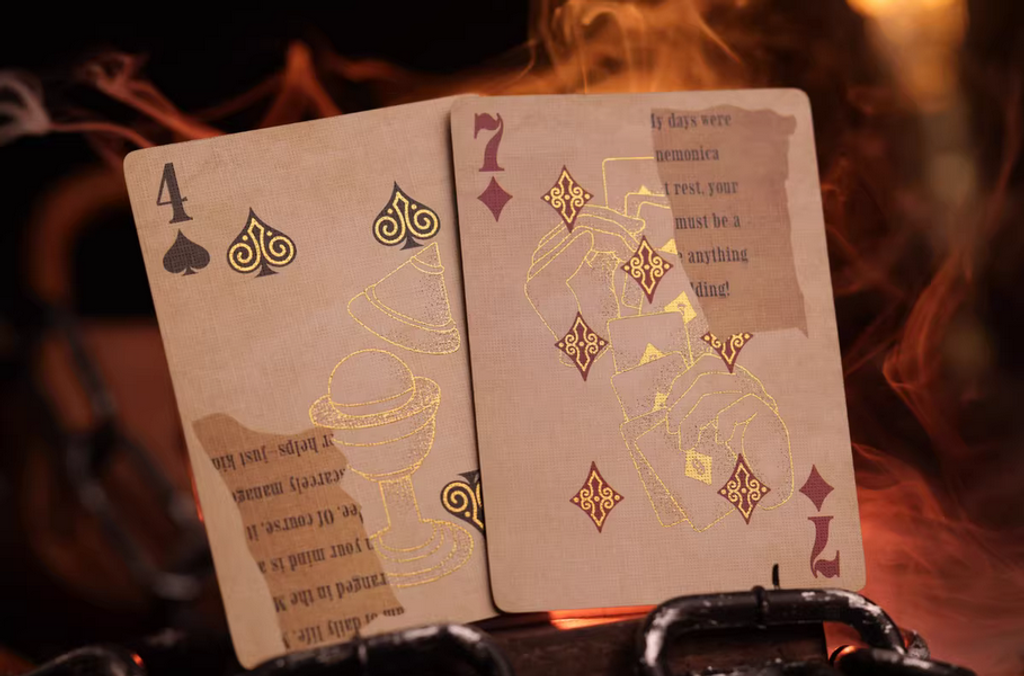 4
of daily life.
ranged in the M
your mind is a
ee. Of course, it
scarcely manage
r helps—just kid
7
My days were
nemonica
t rest, your
must be a
anything
lding!
7